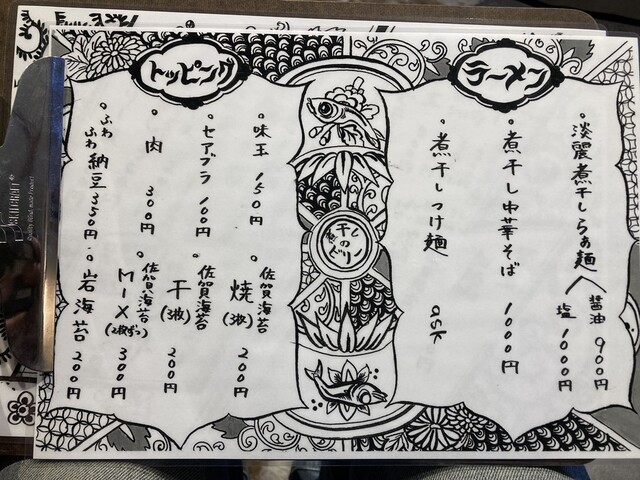 ラーメン
・淡麗煮干しらぁ麺
醤油 900円
塩 1000円
・煮干し中華そば 1000円
・煮干しつけ麺 ask
煮干しのビリン
トッピング
・味玉 150円
・セアブラ 100円
・肉 300円
・ふわふわ納豆 350円
・佐賀海苔 焼(3枚) 200円
・佐賀海苔 干(3枚) 200円
・佐賀海苔 MIX(2枚ずつ) 300円
・岩海苔 200円